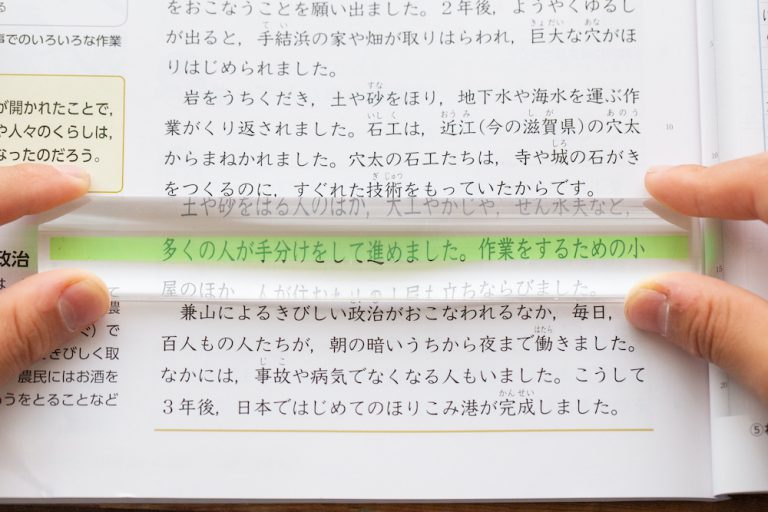 る
事でのいろいろな作業
が開かれたことで，
や人々のくらしは，
なったのだろう。
政治
は
て
農
で
きびしく取
農民にはお酒を
うをとることなど
をおこなうことを願い出ました。２年後，ようやくゆるし
が出ると，手結浜の家や畑が取りはらわれ，巨大な穴がほ
りはじめられました。
岩をうちくだき，土や砂をほり，地下水や海水を運ぶ作
業がくり返されました。石工は，近江(今の滋賀県)の穴太
からまねかれました。穴太の石工たちは，寺や城の石がき
をつくるのに，すぐれた技術をもっていたからです。
土や砂をほる人のほか，大工やかじや，せん水夫など，
多くの人が手分けをして進めました。作業をするための小
屋のほか，人が住むための長屋も立ちならびました。
兼山によるきびしい政治がおこなわれるなか，毎日，
百人もの人たちが，朝の暗いうちから夜まで働きました。
なかには，事故や病気でなくなる人もいました。こうして
３年後，日本ではじめてのほりこみ港が完成しました。
5
10
15
20
10
15
⑤